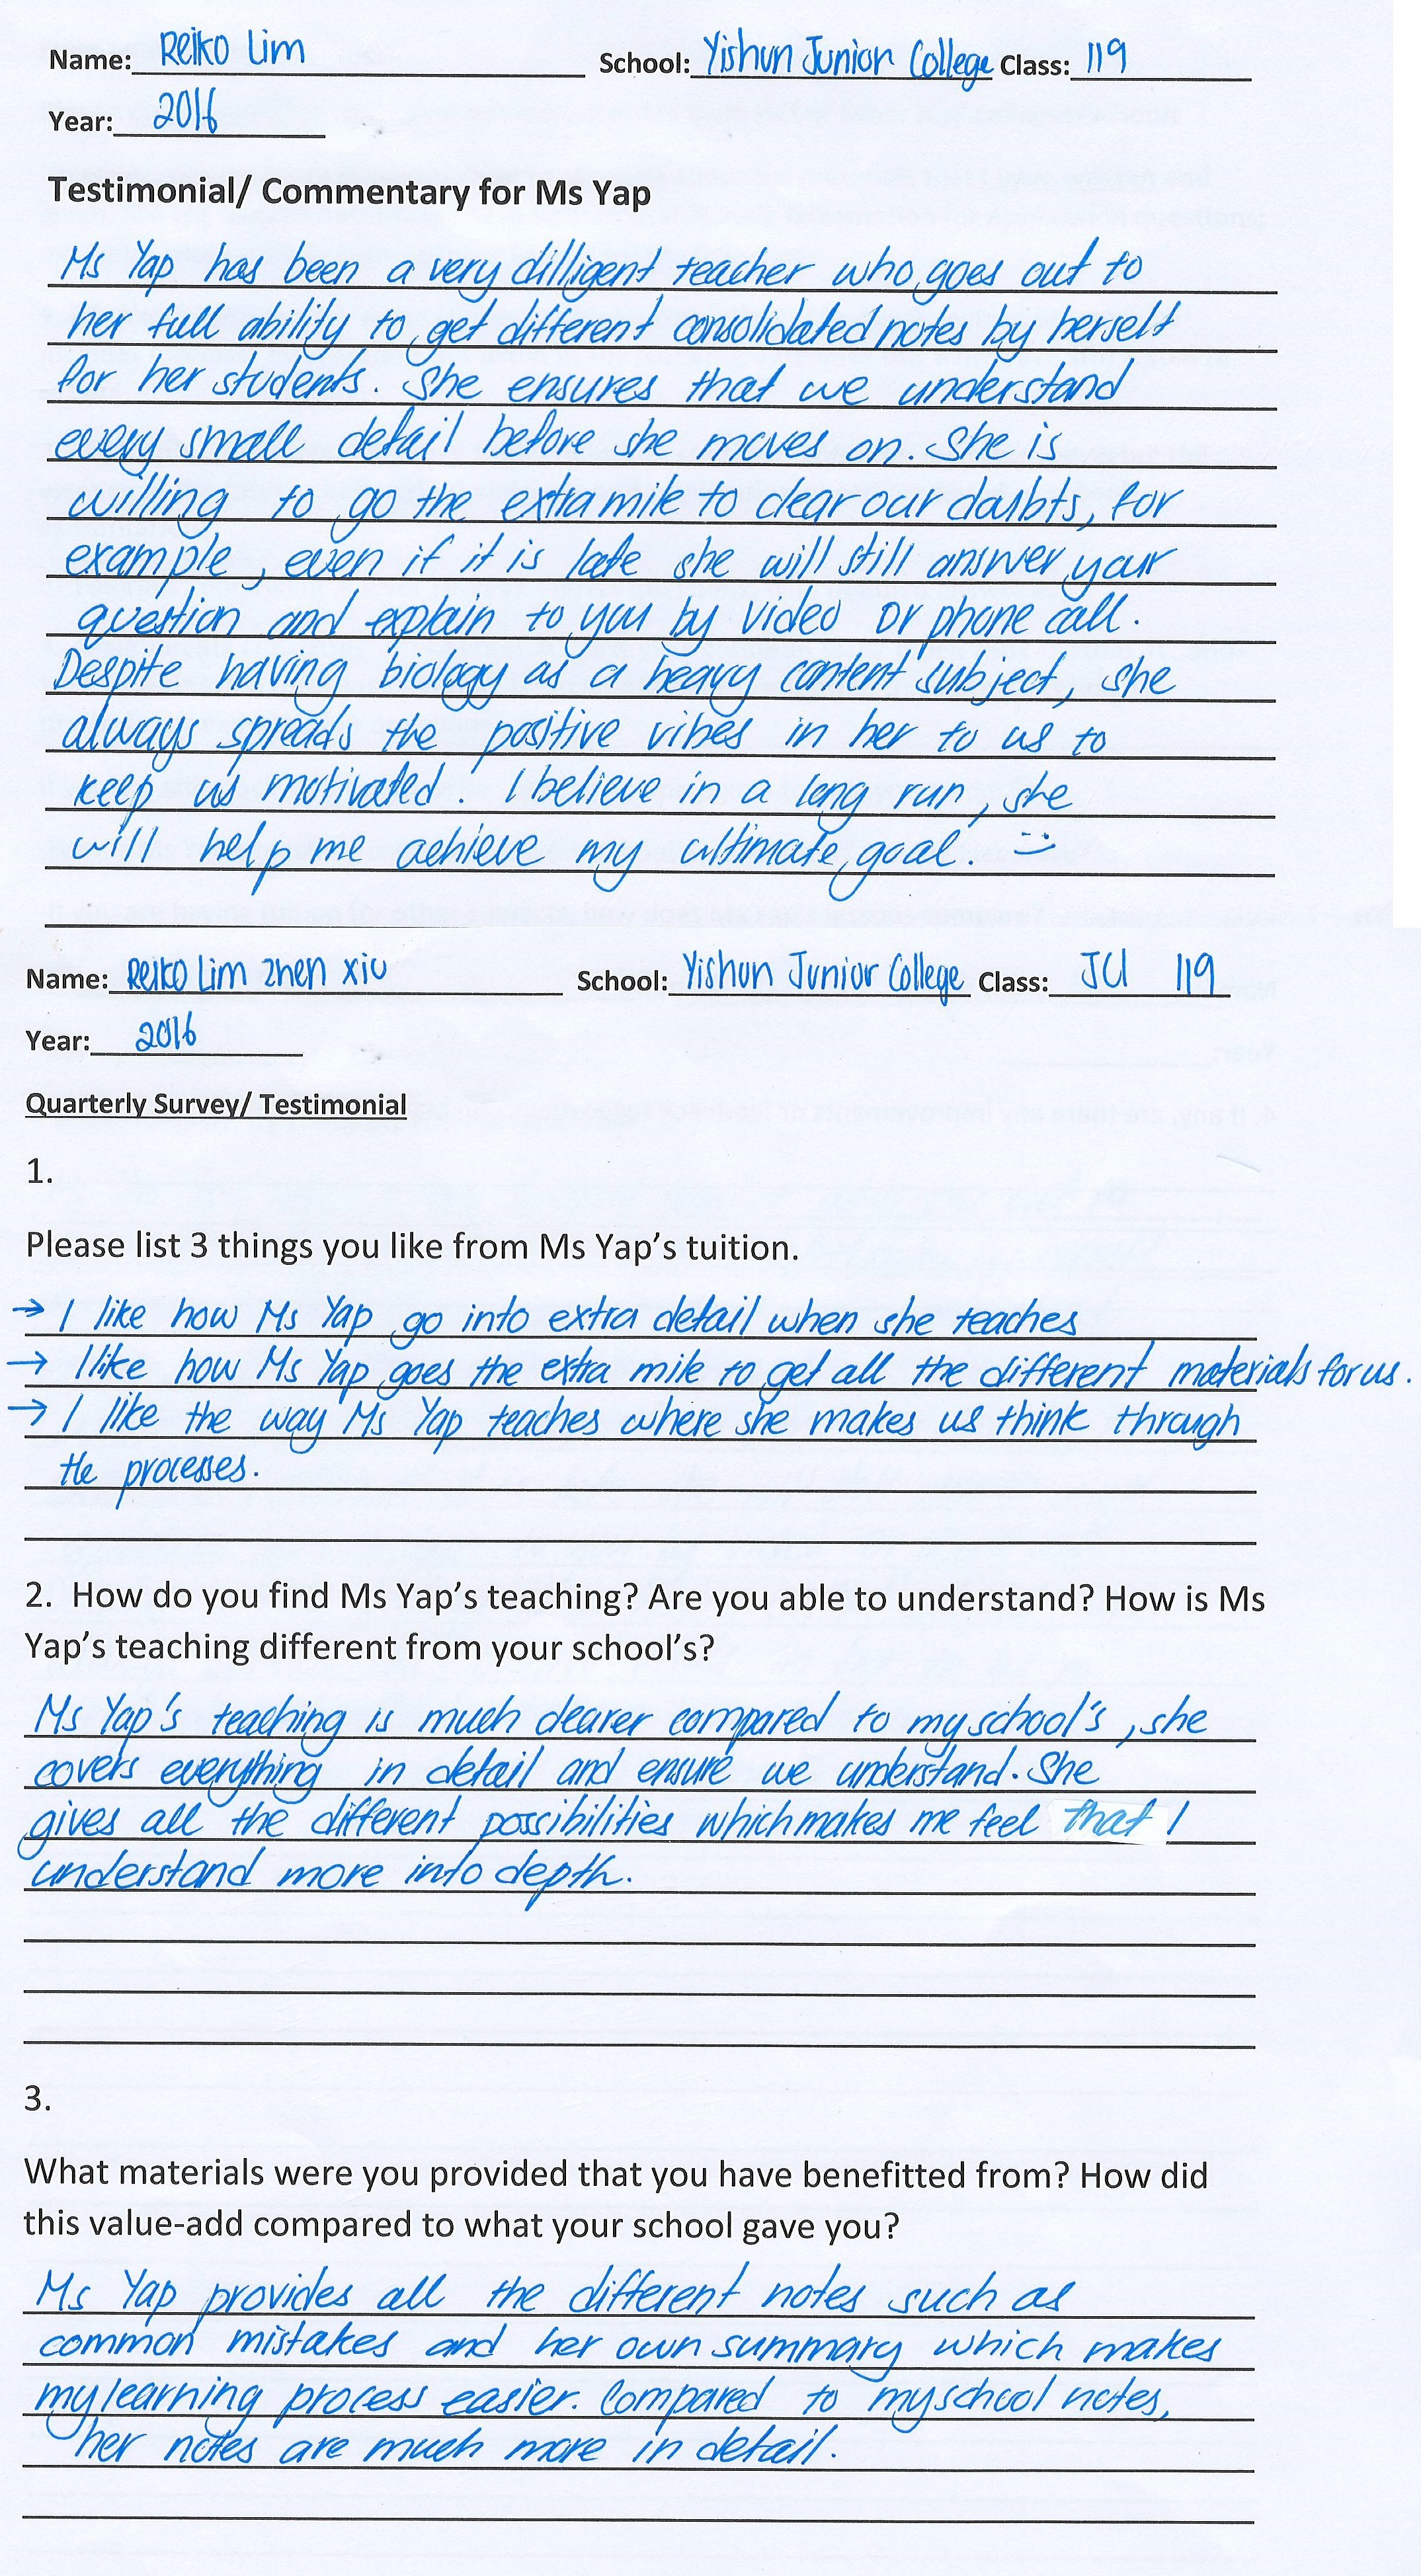 Name: Reiko Lim School: Yishun Junior College Class: 119
Year: 2016
Testimonial/ Commentary for Ms Yap
Ms Yap has been a very dilligent teacher who goes out to
her full ability to get different consolidated notes by herself
for her students. She ensures that we understand
every small detail before she moves on. She is
willing to go the extra mile to clear our doubts, for
example, even if it is late she will still answer your
question and explain to you by video or phone call.
Despite having biology as a heavy content subject, she
always spreads the positive vibes in her to us to
keep us motivated. I believe in a long run, she
will help me achieve my ultimate goal. :)
Name: Reiko Lim Zhen Xiu School: Yishun Junior College Class: JC1 119
Year: 2016
Quarterly Survey/ Testimonial
1.
Please list 3 things you like from Ms Yap's tuition.
→ I like how Ms Yap go into extra detail when she teaches
→ I like how Ms Yap goes the extra mile to get all the different materials for us.
→ I like the way Ms Yap teaches where she makes us think through
the processes.
2. How do you find Ms Yap's teaching? Are you able to understand? How is Ms
Yap's teaching different from your school's?
Ms Yap's teaching is much clearer compared to my school's, she
covers everything in detail and ensure we understand. She
gives all the different possibilities which makes me feel that I
understand more into depth.
3.
What materials were you provided that you have benefitted from? How did
this value-add compared to what your school gave you?
Ms Yap provides all the different notes such as
common mistakes and her own summary which makes
my learning process easier. Compared to my school notes,
her notes are much more in detail.